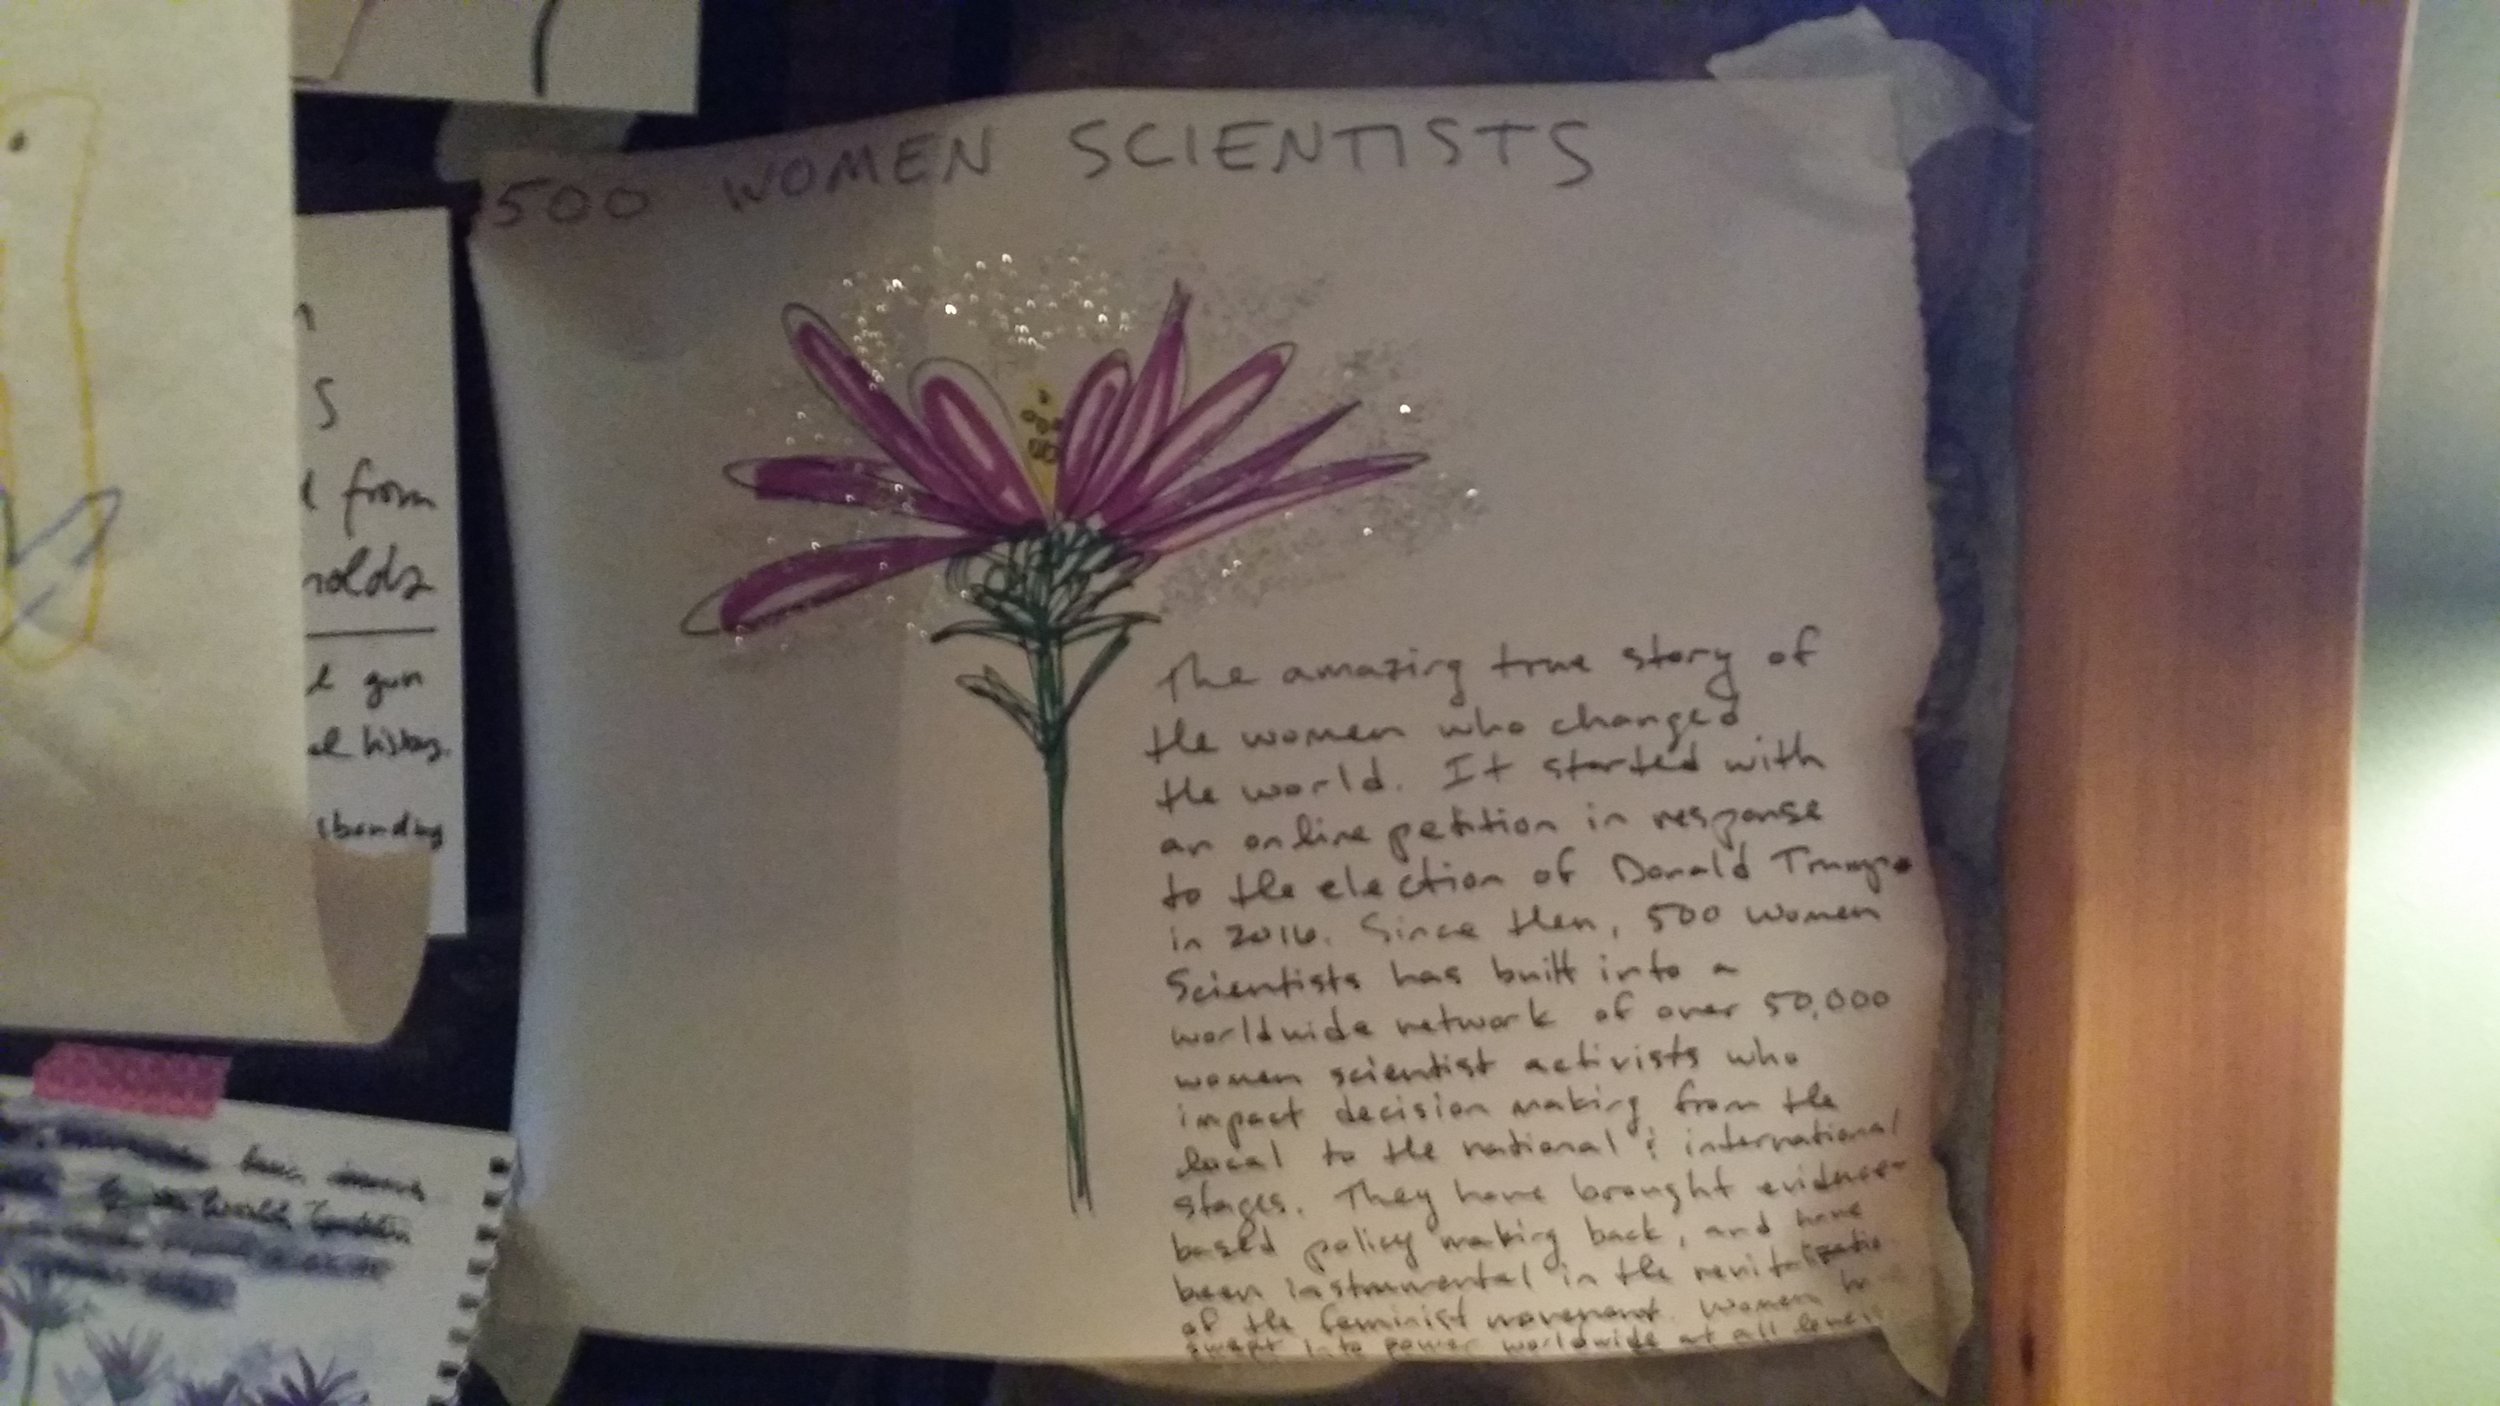 500 WOMEN SCIENTISTS
The amazing true story of
the women who changed
the world. It started with
an online petition in response
to the election of Donald Trump
in 2016. Since then, 500 Women
Scientists has built into a
worldwide network of over 50,000
women scientist activists who
impact decision making from the
local to the national & international
stages. They have brought evidence-
based policy making back, and have
been instrumental in the revitalizatio
of the feminist movement. Women
swept into power worldwide at all levels
S
from
nolds
gun
history.